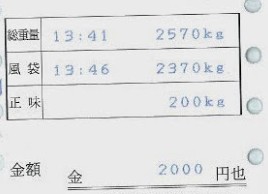 総重量 13:41 2570kg
風袋 13:46 2370kg
正味 200kg
金額 金 2000 円也